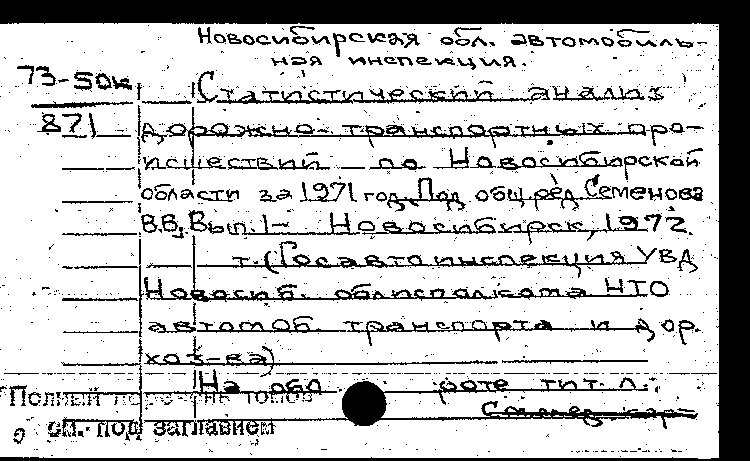 Новосибирская обл. автомобиль-
ная инспекция.
73-50к
Статистический анализ
871
дорожно-транспортных про-
исшествий по Новосибирской
области за 1971 год. Под общ. ред. Семенова
В.В., Вып. 1- Новосибирск, 1972.
т. (Госавтоинспекция УВД
Новосиб. облисполкома НТО
автомоб. транспорта и дор.
хоз-ва)
На обороте тит. л.:
Полный перечень томов
см. под заглавием